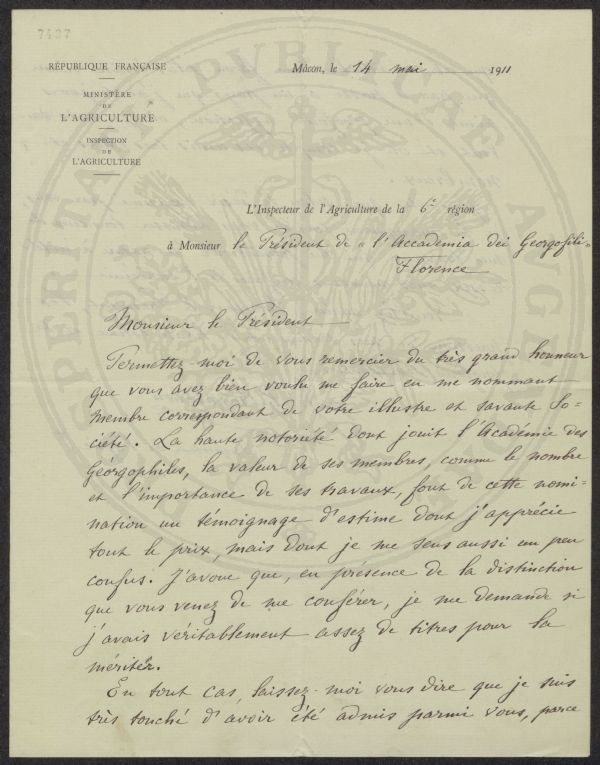 7437
RÉPUBLIQUE FRANÇAISE
MINISTÈRE
DE
L'AGRICULTURE
INSPECTION
DE
L'AGRICULTURE
Mâcon, le 14 mai 1911
L'Inspecteur de l'Agriculture de la 6e région
à Monsieur le Président de "l'Accademia dei Georgofili"
Florence
Monsieur le Président
Permettez-moi de vous remercier du très grand honneur
que vous avez bien voulu me faire en me nommant
membre correspondant de votre illustre et savante So=
ciété. La haute notoriété dont jouit l'Académie des
Géorgophiles, la valeur de ses membres, comme le nombre
et l'importance de ses travaux, font de cette nomi-
nation un témoignage d'estime dont j'apprécie
tout le prix, mais dont je me sens aussi un peu
confus. J'avoue que, en présence de la distinction
que vous venez de me conférer, je me demande si
j'avais véritablement assez de titres pour la
mériter.
En tout cas, laissez-moi vous dire que je suis
très touché d'avoir été admis parmi vous, parce